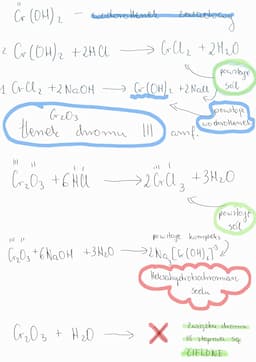 II
Cr(OH)₂ - wodorotlenek zasadowy
2. Cr(OH)₂ + 2HCl ⟶ CrCl₂ + 2H₂O
powstaje sól
1. CrCl₂ + 2NaOH ⟶ Cr(OH)₂ + 2NaCl
powstaje wodorotlenek
Cr₂O₃
tlenek chromu III amf.
III II I I III I
Cr₂O₃ + 6HCl ⟶ 2CrCl₃ + 3H₂O
powstaje sól
powstaje kompleks
III II
Cr₂O₃ + 6NaOH + 3H₂O ⟶ 2Na₃[Cr(OH)₆]³⁻
Heksahydroksochromian sodu
Cr₂O₃ + H₂O ⟶ X
związki chromu
III stopnia są
ZIELONE